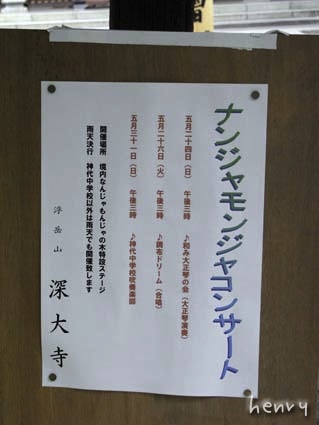 ナンジャモンジャコンサート
五月二十四日（日）　午後三時　♪和み大正琴の会（大正琴演奏）
五月二十六日（火）　午後三時　♪調布ドリーム（合唱）
五月三十一日（日）　午後三時　♪神代中学校吹奏楽部
開催場所　境内なんじゃもんじゃの木特設ステージ
雨天決行　神代中学校以外は雨天でも開催致します
浮岳山　深大寺
henry